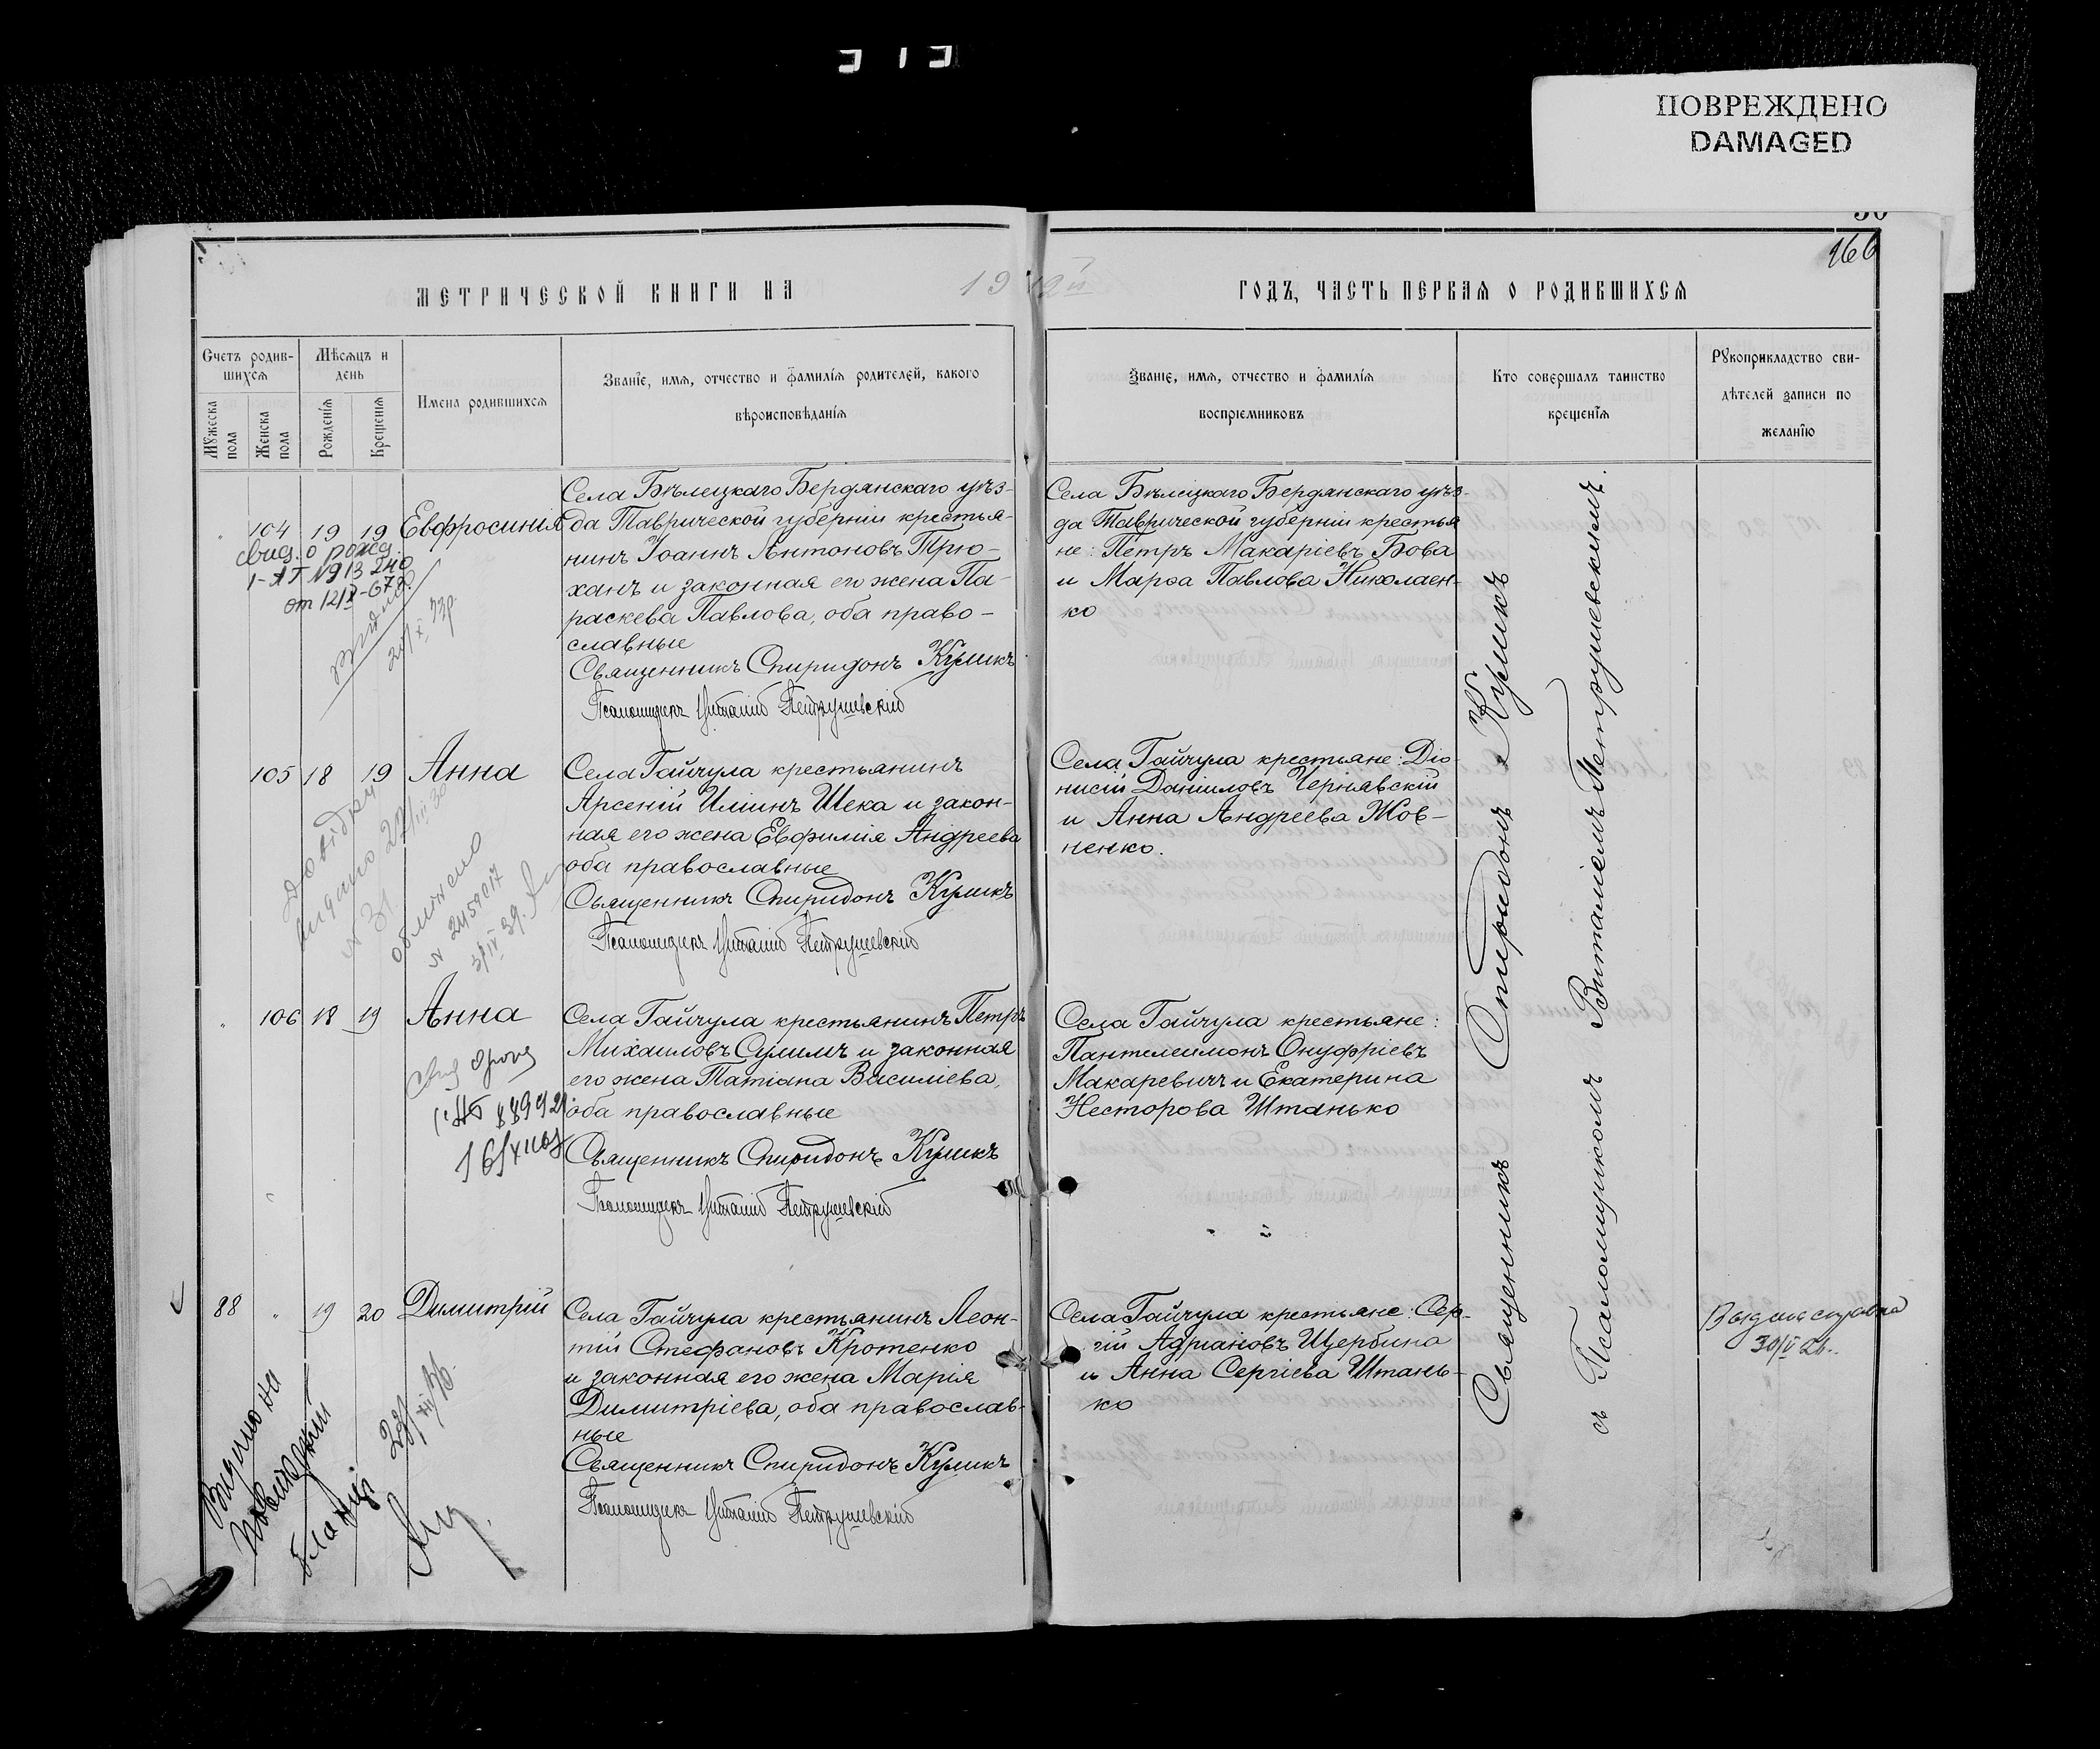 ПОВРЕЖДЕНО
DAMAGED
166
МЕТРИЧЕСКОЙ КНИГИ НА 1912 ГОДЪ, ЧАСТЬ ПЕРВАЯ О РОДИВШИХСЯ
Счетъ родив-
шихся
Мужеска пола
Женска пола
Мѣсяцъ и
день
Рожденія
Крещенія
Имена родившихся
Званіе, имя, отчество и фамилія родителей, какого
вѣроисповѣданія
Званіе, имя, отчество и фамилія
воспріемниковъ
Кто совершалъ таинство
крещенія
Рукоприкладство сви-
дѣтелей записи по
желанію
104 19 19 Евфросинія
свид. о рожд.
Села Бѣлецкаго Бердянскаго уѣз-
да Таврической губерніи крестья-
нинъ Іоаннъ Антоновъ Трю-
ханъ и законная его жена Па-
раскева Павлова, оба право-
славные
Священникъ Спиридонъ Куликъ
Псаломщикъ Виталій Петрушевскій
Села Бѣлецкаго Бердянскаго уѣз-
да Таврической губерніи крестья
не: Петръ Макаріевъ Бова
и Марѳа Павлова Николаен-
ко
105 18 19 Анна
Села Гайчула крестьянинъ
Арсеній Иліинъ Шека и закон-
ная его жена Евфимія Андреева
оба православные
Священникъ Спиридонъ Куликъ
Псаломщикъ Виталій Петрушевскій
Села Гайчула крестьяне: Діо-
нисій Даніиловъ Чернявскій
и Анна Андреева Жов-
ненко.
106 18 19 Анна
Села Гайчула крестьянинъ Петръ
Михаиловъ Сулимъ и законная
его жена Татіана Василіева,
оба православные
Священникъ Спиридонъ Куликъ
Псаломщикъ Виталій Петрушевскій
Села Гайчула крестьяне:
Пантелеимонъ Онуфріевъ
Макаревичъ и Екатерина
Несторова Штанько
88 " 19 20 Димитрій
Села Гайчула крестьянинъ Леон-
тій Стефановъ Кротенко
и законная его жена Марія
Димитріева, оба православ-
ные
Священникъ Спиридонъ Куликъ
Псаломщикъ Виталій Петрушевскій
Села Гайчула крестьяне: Сер-
гій Адріановъ Щербина
и Анна Сергіева Штань-
ко
Священникъ Спиридонъ Куликъ
съ Псаломщикомъ Виталіемъ Петрушевскимъ.